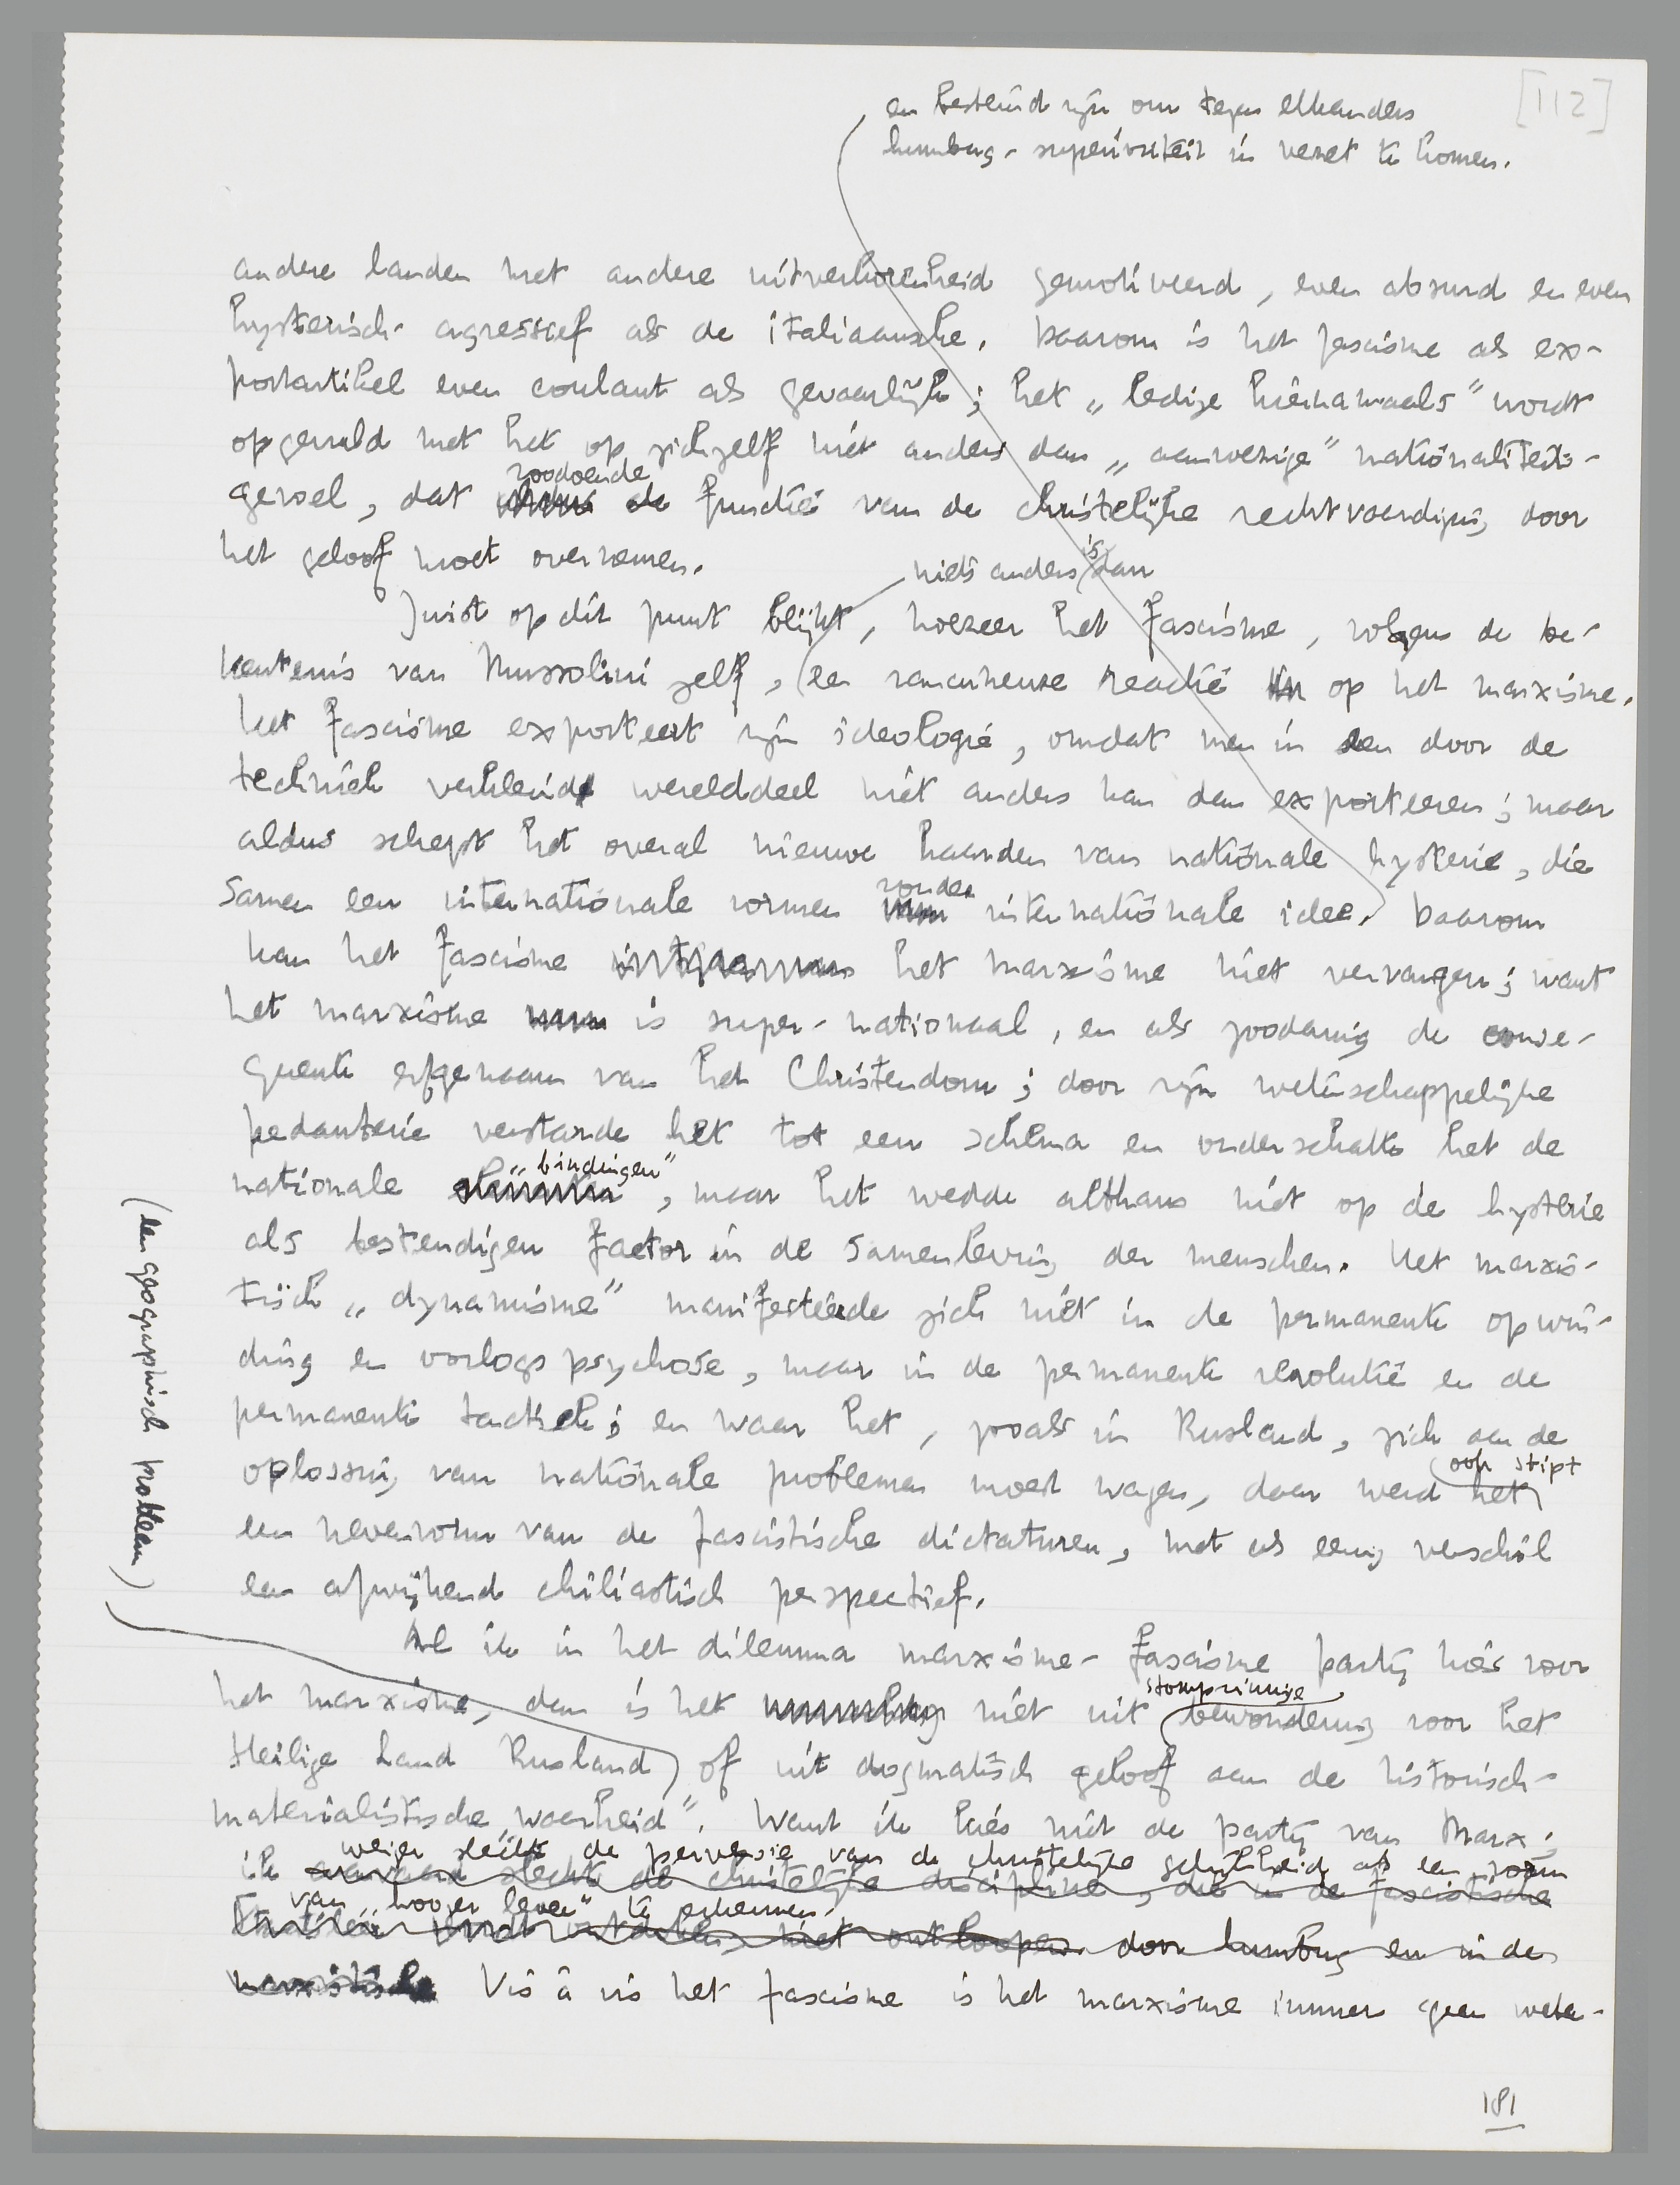 [112]
en bestemd zijn om tegen elkanders
humbug-superioriteit in verzet te komen.
andere landen met andere uitverkorenheid gemotiveerd, even absurd en even
hysterisch-agressief als de italiaansche. Daarom is het fascisme als ex-
portartikel even coulant als gevaarlijk; het „ledige hiernamaals” wordt
opgevuld met het op zichzelf niet anders dan „aanwezige” nationaliteits-
zoodoende
gevoel, dat de functie van de christelijke rechtvaardiging door
het geloof moet overnemen.
niets anders is dan
Juist op dit punt blijkt, hoezeer het fascisme, volgens de be-
kentenis van Mussolini zelf, een rancuneuze reactie op het marxisme.
Het fascisme exporteert zijn ideologie, omdat men in een door de
techniek verkleind werelddeel niet anders kan dan exporteeren; maar
aldus schept het overal nieuwe haarden van nationale hysterie, die
zonder
samen een internationale vormen internationale idee. Daarom
kan het fascisme het marxisme niet vervangen; want
het marxisme is super-nationaal, en als zoodanig de conse-
quente erfgenaam van het Christendom; door zijn wetenschappelijke
pedanterie verstarde het tot een schema en onderschatte het de
„bindingen”
nationale , maar het wedde althans niet op de hysterie
als bestendigen factor in de samenleving der menschen. Het marxis-
tisch „dynamisme” manifesteerde zich niet in de permanente opwin-
ding en oorlogspsychose, maar in de permanente revolutie en de
permanente tactiek; en waar het, zooals in Rusland, zich aan de
oplossing van nationale problemen moest wagen, daar werd het
ook stipt
een nevenvorm van de fascistische dictaturen, met als eenig verschil
een afwijkend chiliastisch perspectief.
Als ik in het dilemma marxisme-fascisme partij kies voor
stompzinnige
het marxisme, dan is het niet uit bewondering voor het
Heilige Land Rusland of uit dogmatisch geloof aan de historisch-
(een geografisch probleem)
materialistische „waarheid”. Want ik kies niet de partij van Marx;
weiger slechts de perversie van de christelijke gelijkheid als een vorm
ik aanvaard slechts de christelijke discipline, die in de fascistische
van „hooger leven” te erkennen.
niet ontloopen door humbug en in de
marxistische Vis à vis het fascisme is het marxisme immers geen weten-
181